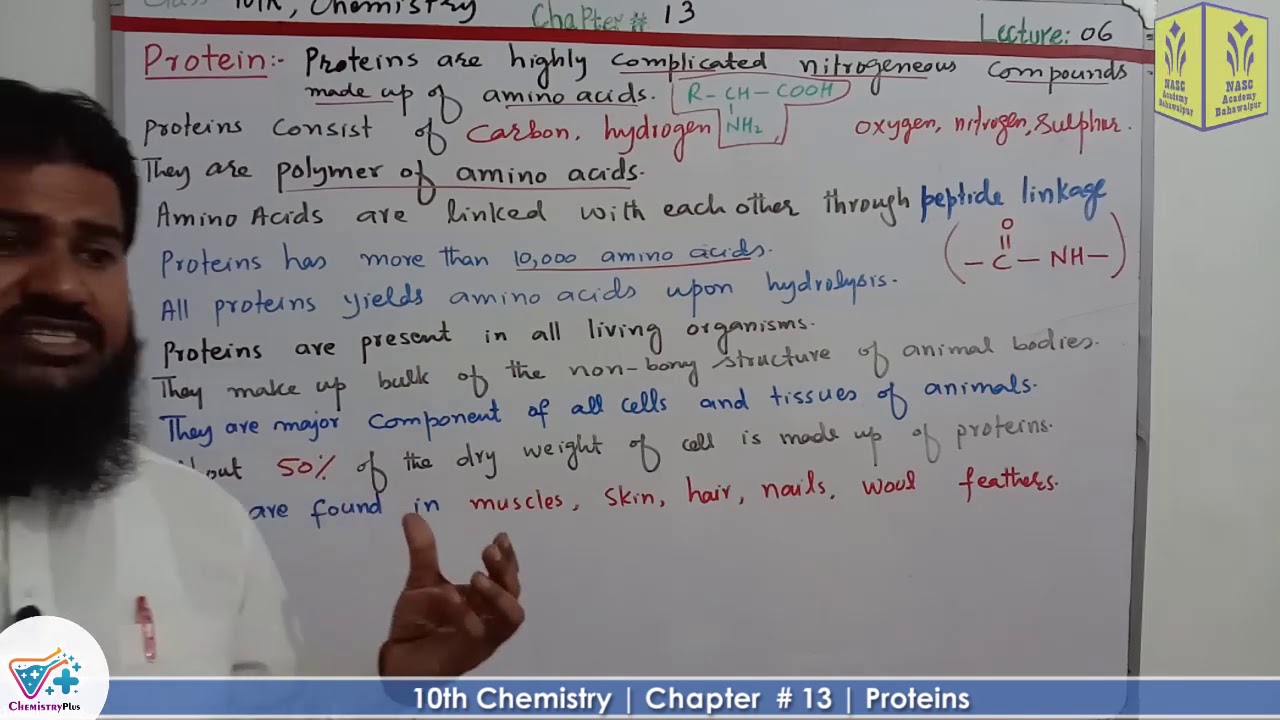 Class 10th, Chemistry Chapter # 13
Lecture: 06
Protein:- Proteins are highly complicated nitrogeneous compounds
made up of amino acids. R - CH - COOH
NH2
proteins consist of carbon, hydrogen oxygen, nitrogen, sulphur.
They are polymer of amino acids.
Amino Acids are linked with each other through peptide linkage
O
( - C - NH - )
Proteins has more than 10,000 amino acids.
All proteins yields amino acids upon hydrolysis.
Proteins are present in all living organisms.
They make up bulk of the non-bony structure of animal bodies.
They are major component of all cells and tissues of animals.
50% of the dry weight of cell is made up of proteins.
are found in muscles, skin, hair, nails, wool feathers.
NASC
Academy
Bahawalpur
NASC
Academy
Bahawalpur
ChemistryPlus
10th Chemistry | Chapter # 13 | Proteins